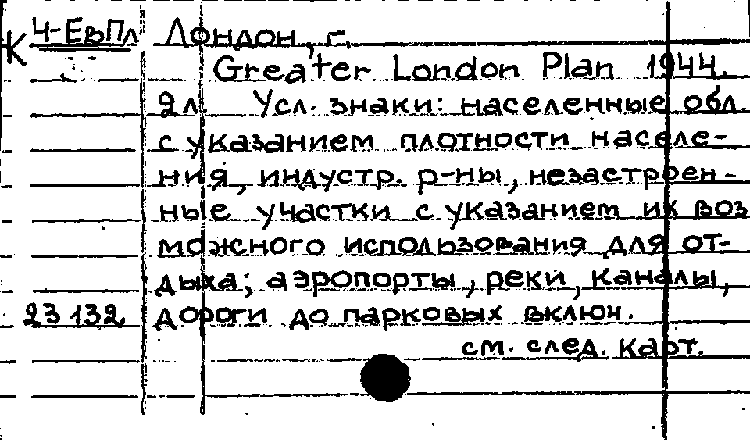 К Ч-ЕвПл Лондон, г.
Greater London Plan 1944.
2 л. Усл. знаки: населенные обл.
с указанием плотности населе-
ния, индустр. р-ны, незастроен-
ные участки с указанием их воз
можного использования для от-
дыха; аэропорты, реки, каналы,
23 132 дороги до парковых включ.
см. след. карт.